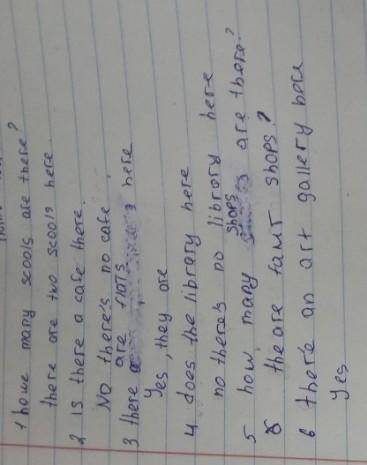 1 howe many scools are there?
there are two scools here.
2 is there a cafe there.
No there's no cafe.
3 there are flats here
Yes, they are
4 does the library here
no there's no library here
5 how many shops are there?
8 theare shops?
6 there an art gallery here
Yes